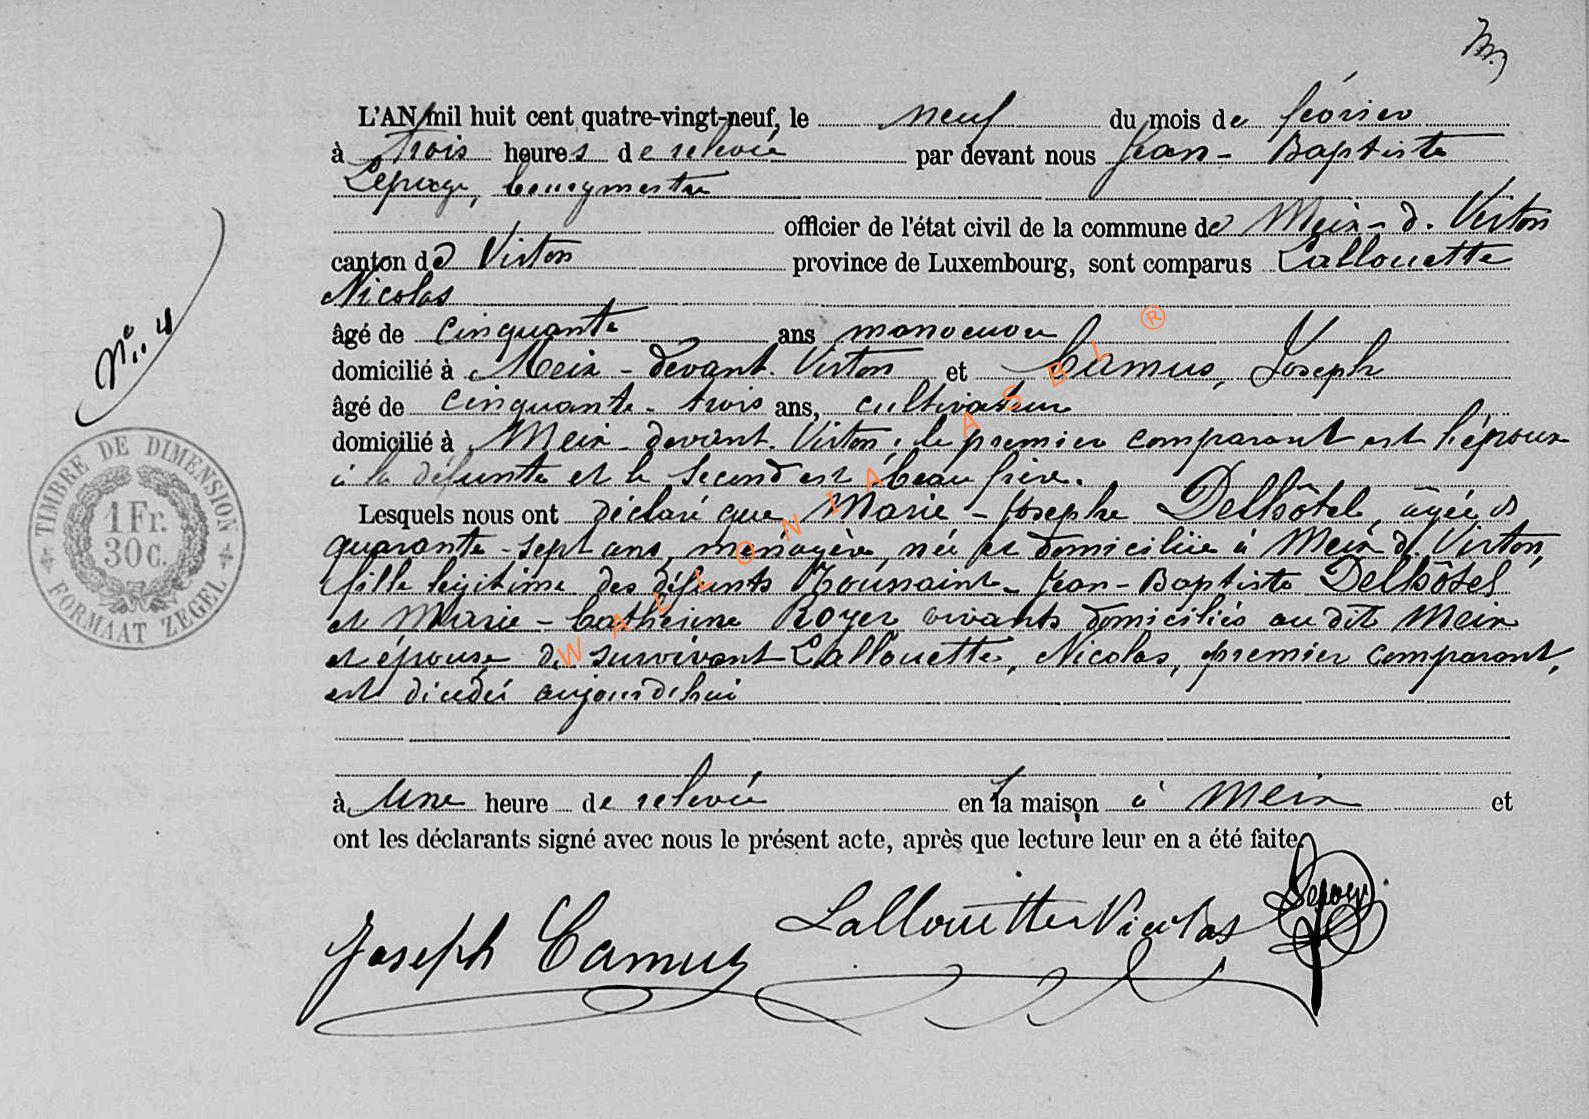 L'AN mil huit cent quatre-vingt-neuf, le neuf du mois de février
à trois heures de relevée par devant nous Jean-Baptiste
Lepage, bourgmestre
officier de l'état civil de la commune de Meix-d. Virton
canton de Virton province de Luxembourg, sont comparus Lallouette
Nicolas
âgé de cinquante ans manoeuvre
domicilié à Meix-devant-Virton et Camus, Joseph
âgé de cinquante-trois ans, cultivateur
domicilié à Meix-devant-Virton; le premier comparant est l'époux
à la défunte et le second est beau frère.
Lesquels nous ont déclaré que Marie-Josephe Delhôtel, âgée de
quarante-sept ans, ménagère, née et domiciliée à Meix d. Virton,
fille légitime des défunts Toussaint-Jean-Baptiste Delhôtel
et Marie-Catherine Royer vivants domiciliés au dit Meix
et épouse de survivant Lallouette, Nicolas, premier comparant,
est décédée aujourd'hui
à une heure de relevée en la maison à Meix et
ont les déclarants signé avec nous le présent acte, après que lecture leur en a été faite.
Joseph Camus Lallouette Nicolas Lepage
No. 4
TIMBRE DE DIMENSION
1 Fr.
30 C.
FORMAAT ZEGEL
WALLONIA ASBL ®